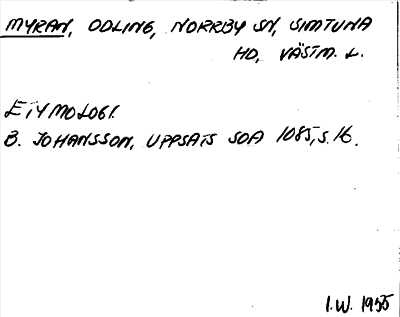 MYRAN, ODLING, NORRBY SN, SIMTUNA
HD, VÄSTM. L.
ETYMOLOGI.
B. JOHANSSON, UPPSATS SOA 1085, S. 16.
I.W. 1955